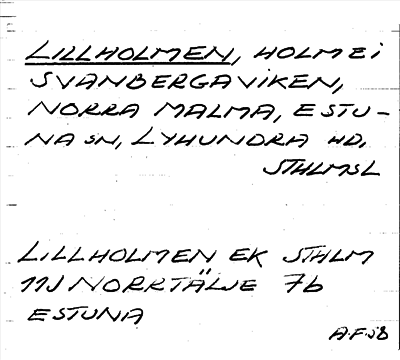 LILLHOLMEN, HOLME i
SVANBERGAVIKEN,
NORRA MALMA, ESTU-
NA SN, LYHUNDRA HD,
STHLMSL
LILLHOLMEN EK STHLM
11J NORRTÄLJE 7b
ESTUNA
A.F.58